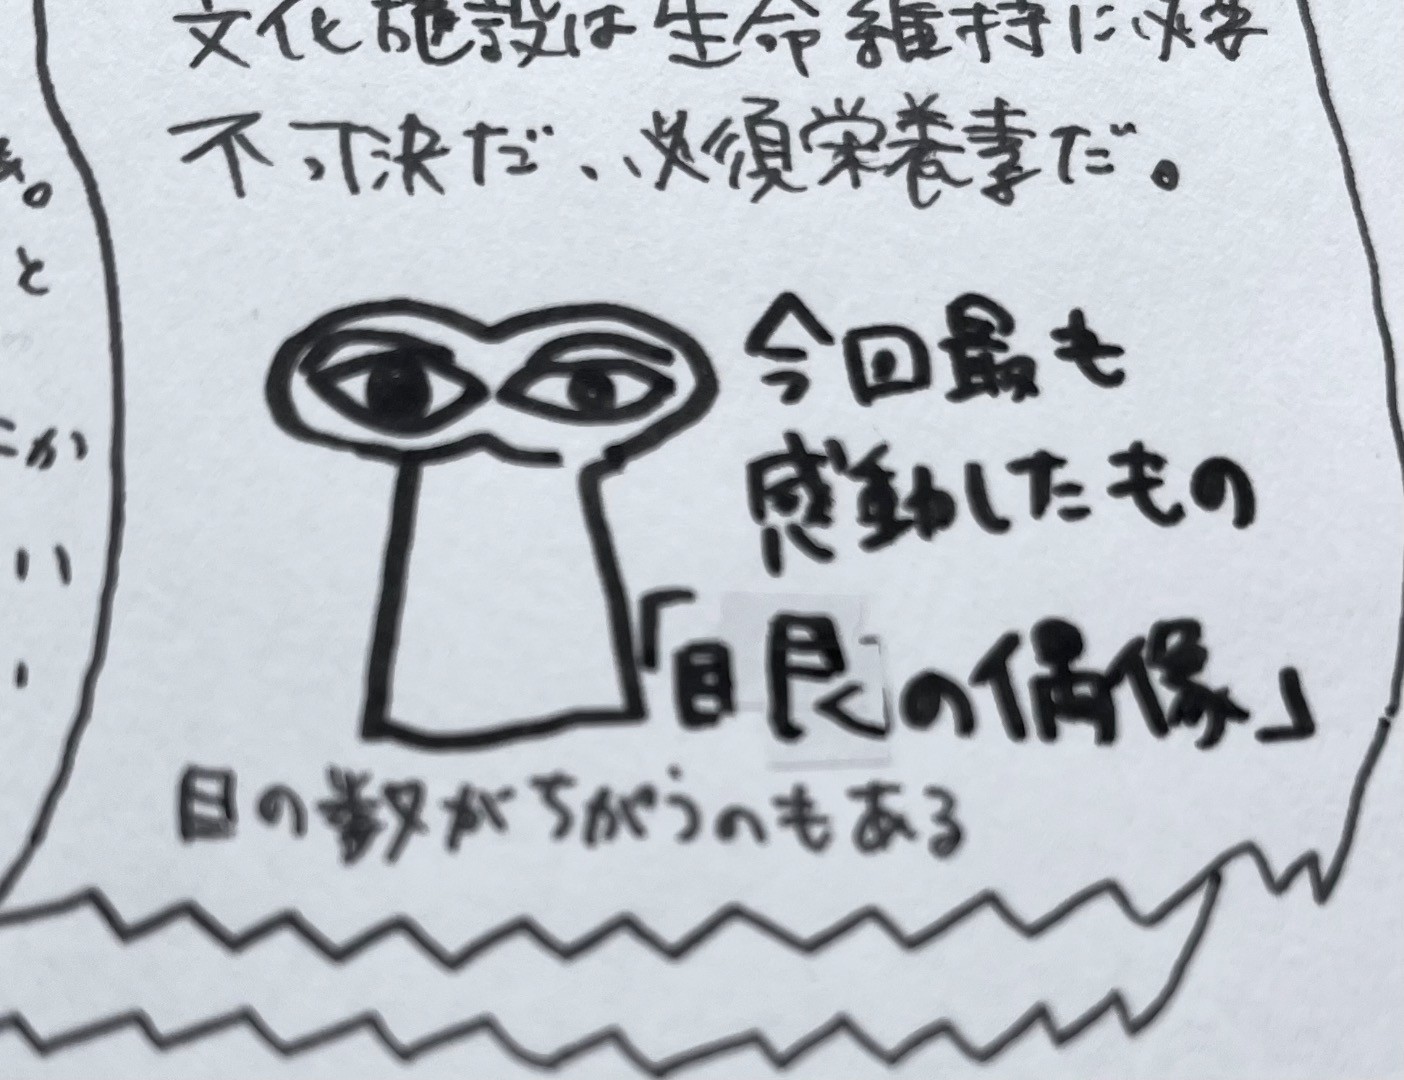 文化施設は生命維持に必要
不可決だ、必須栄養素だ。
今回最も
感動したもの
「眼の偶像」
目の数がちがうのもある
。
と
か
い